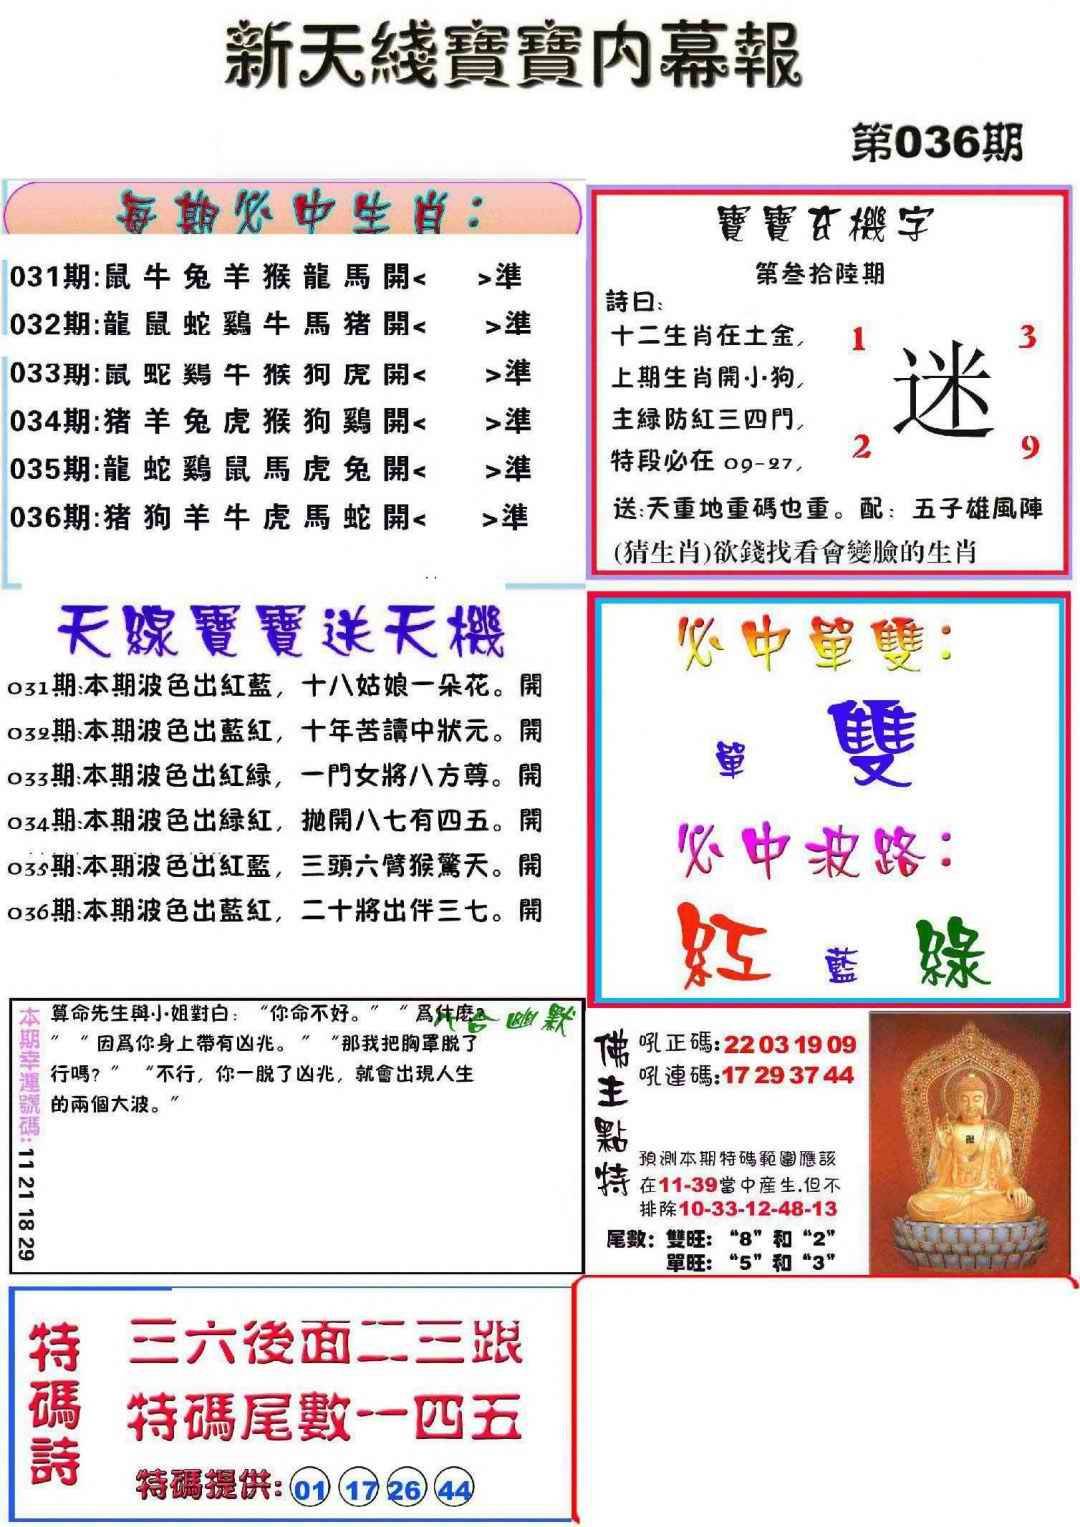 新天綫寶寶内幕報
第036期
每期必中生肖：
031期:鼠牛兔羊猴龍馬開< >準
032期:龍鼠蛇鷄牛馬猪開< >準
033期:鼠蛇鷄牛猴狗虎開< >準
034期:猪羊兔虎猴狗鷄開< >準
035期:龍蛇鷄鼠馬虎兔開< >準
036期:猪狗羊牛虎馬蛇開< >準
寶寶玄機字
第叁拾陸期
詩曰:
十二生肖在土金,
上期生肖開小狗,
主緑防紅三四門,
特段必在 09-27,
1 3
迷
2 9
送:天重地重碼也重。配：五子雄風陣
(猜生肖)欲錢找看會變臉的生肖
天線寶寶送天機
031期:本期波色出紅藍，十八姑娘一朵花。開
032期:本期波色出藍紅，十年苦讀中狀元。開
033期:本期波色出紅緑，一門女將八方尊。開
034期:本期波色出緑紅，抛開八七有四五。開
035期:本期波色出紅藍，三頭六臂猴驚天。開
036期:本期波色出藍紅，二十將出伴三七。開
必中單雙：
單 雙
必中波路：
紅 藍 綠
本期幸運號碼:11 21 18 29
六合幽默
算命先生與小姐對白：“你命不好。”“爲什麽?
”“因爲你身上帶有凶兆。”“那我把胸罩脱了
行嗎？”“不行，你一脱了凶兆，就會出現人生
的兩個大波。”
佛主點特
吼正碼:22 03 19 09
吼連碼:17 29 37 44
預測本期特碼範圍應該
在11-39當中産生.但不
排除10-33-12-48-13
尾數：雙旺：“8”和“2”
單旺：“5”和“3”
特碼詩
三六後面二三跟
特碼尾數一四五
特碼提供: 01 17 26 44